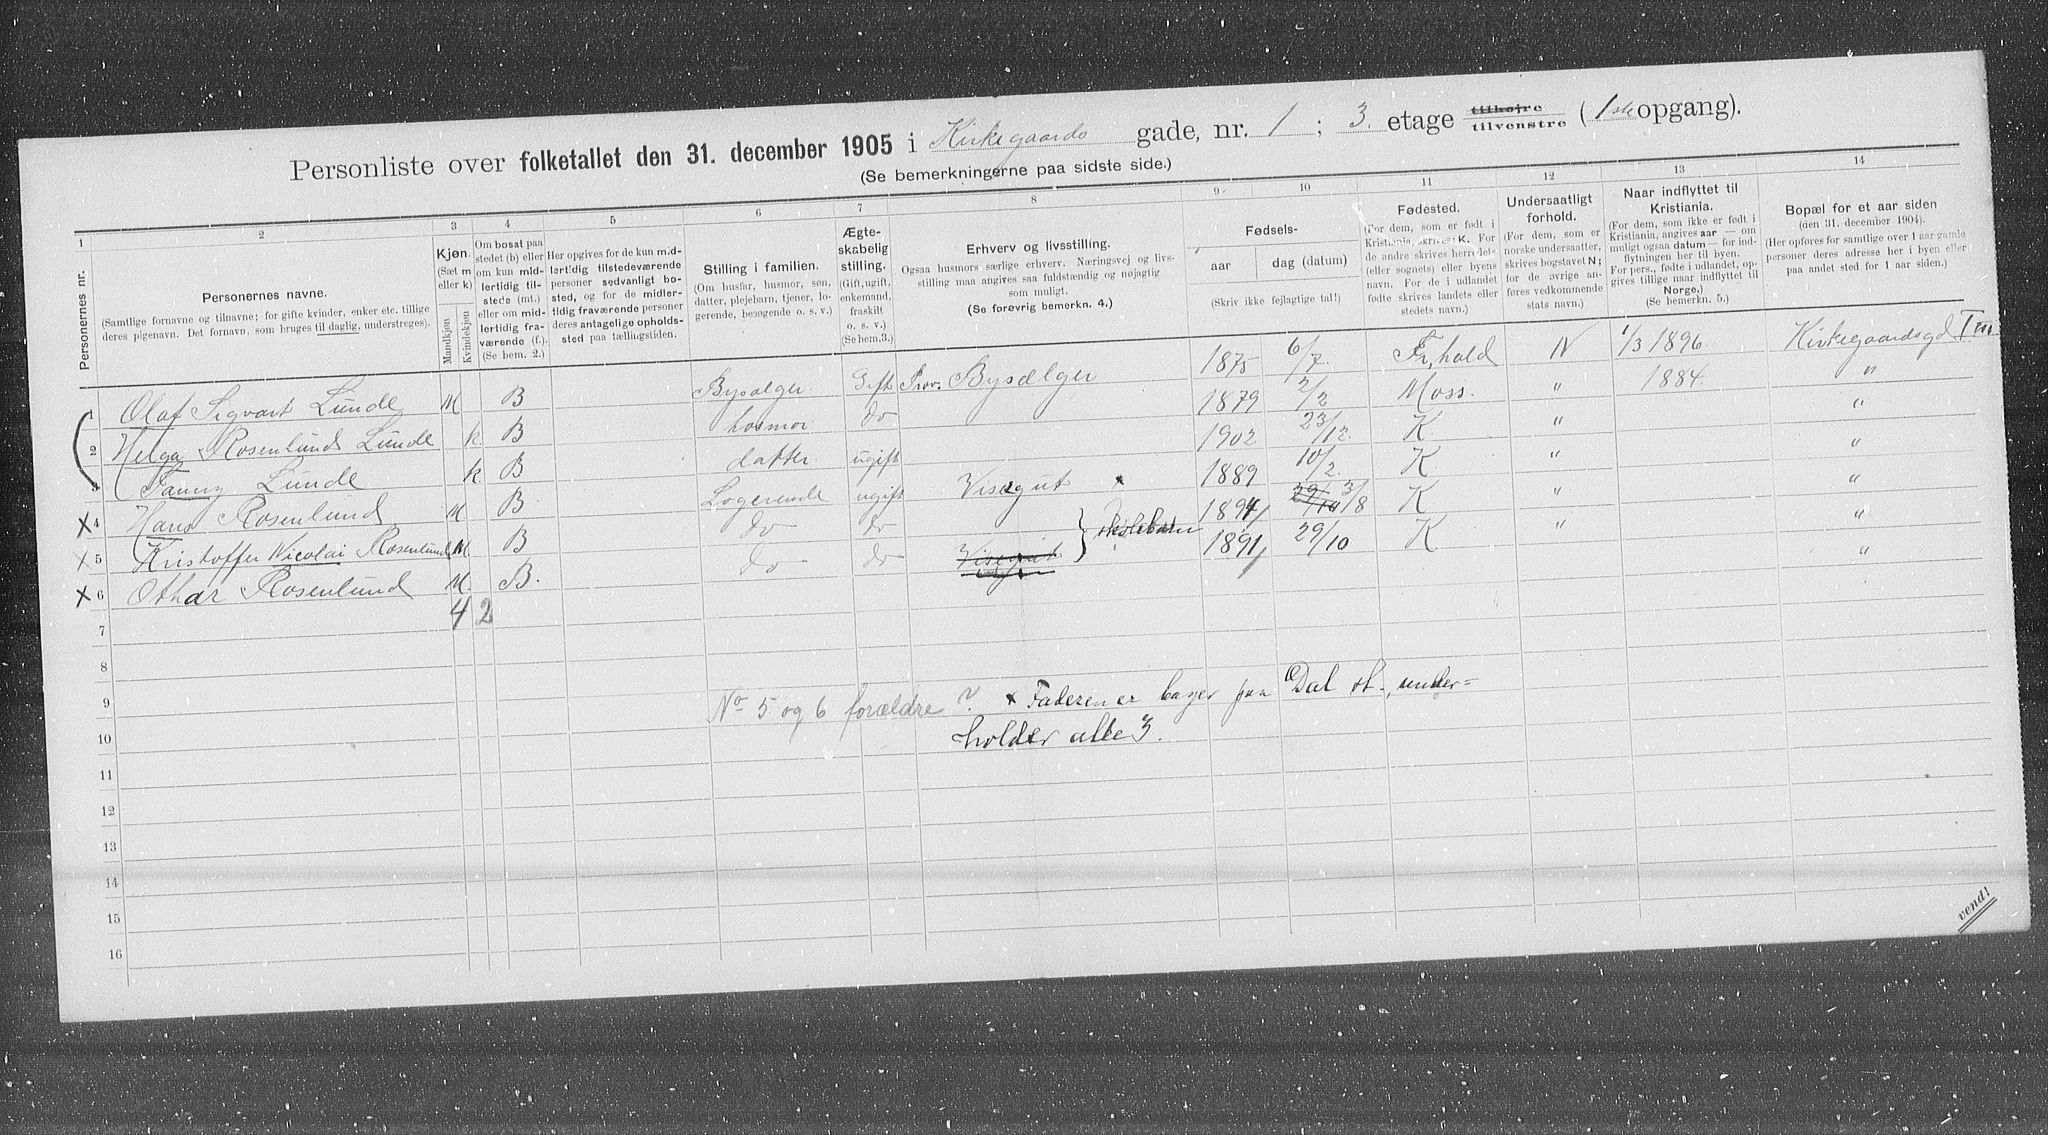 Personliste over folketallet den 31. december 1905 i Kirkegaards gade, nr. 1 ; 3. etage tilhøjre / tilvenstre ( 1ste opgang).
(Se bemerkningerne paa sidste side.)
1 2 3 4 5 6 7 8 9 10 11 12 13 14
Personernes nr.
Personernes navne.
(Samtlige fornavne og tilnavne; for gifte kvinder, enker etc. tillige
deres pigenavn. Det fornavn, som bruges til daglig, understreges).
Kjøn.
(Sæt m
eller k)
Mandkjøn
Kvindekjøn
Om bosat paa
stedet (b) eller
om kun mid-
lertidig til-
stede (mt.)
eller om mid-
lertidig fra-
værende (f.).
(Se bem. 2.)
Her opgives for de kun mid-
lertidig tilstedeværende
personer sedvanligt bo-
sted, og for de midler-
tidig fraværende personer
deres antagelige opholds-
sted paa tællingstiden.
Stilling i familien.
(Om husfar, husmor, søn,
datter, plejebarn, tjener, lo-
gerende, besøgende o. s. v.)
Ægte-
skabelig
stilling.
(Gift, ugift,
enkemand,
fraskilt
o. s. v.)
(Se bem. 3.)
Erhverv og livsstilling.
Ogsaa husmors særlige erhverv. Næringsvej og livs-
stilling maa angives saa fuldstændig og nøjagtig
som muligt.
(Se forøvrig bemerkn. 4.)
Fødsels-
aar
dag (datum)
(Skriv ikke fejlagtige tal!)
Fødested.
(For dem, som er født i
Kristiania, skrives: K. For
de andre skrives herredets
(eller sognets) eller byens
navn. For de i udlandet
fødte skrives landets eller
stedets navn.)
Undersaatligt
forhold.
(For dem, som er
norske undersaatter,
skrives bogstavet N;
for de øvrige an-
føres vedkommende
stats navn.)
Naar indflyttet til
Kristiania.
(For dem, som ikke er født i
Kristiania, angives aar — om
muligt ogsaa datum — for ind-
flytningen her til byen.
For pers., fødte i udlandet, op-
gives tillige naar indflyttet til
Norge.)
(Se bemerkn. 5.)
Bopæl for et aar siden
(den 31. december 1904).
(Her opføres for samtlige over 1 aar gamle
personer deres adresse her i byen eller
paa andet sted for 1 aar siden.)
1 Olaf Sigvart Lunde M B Bysælger Gift Prov. Bysælger 1875 6/7 Fr.hald N 1/3 1896 Kirkegaardsgd 1 III
2 Helga Rosenlund Lunde k B husmor do 1879 2/2 Moss. " 1884 "
3 Fanny Lunde k B datter ugift 1902 23/12 K " "
x 4 Hans Rosenlund M B Logerende ugift Visergut x 1889 10/2 K " "
x 5 Kristoffer Nicolai Rosenlund M B do do } skolebarn 1894 29/10 3/8 K " "
x 6 Othar Rosenlund M B. do do Visergut 1891 29/10 K " "
7 4 2
8
9 No 5 og 6 forældre? x Faderen er bager paa Dal st., under=
10 holder alle 3.
11
12
13
14
15
16
vend!